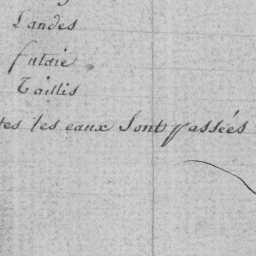 Landes
futaie
Taillis
les eaux Sont passées